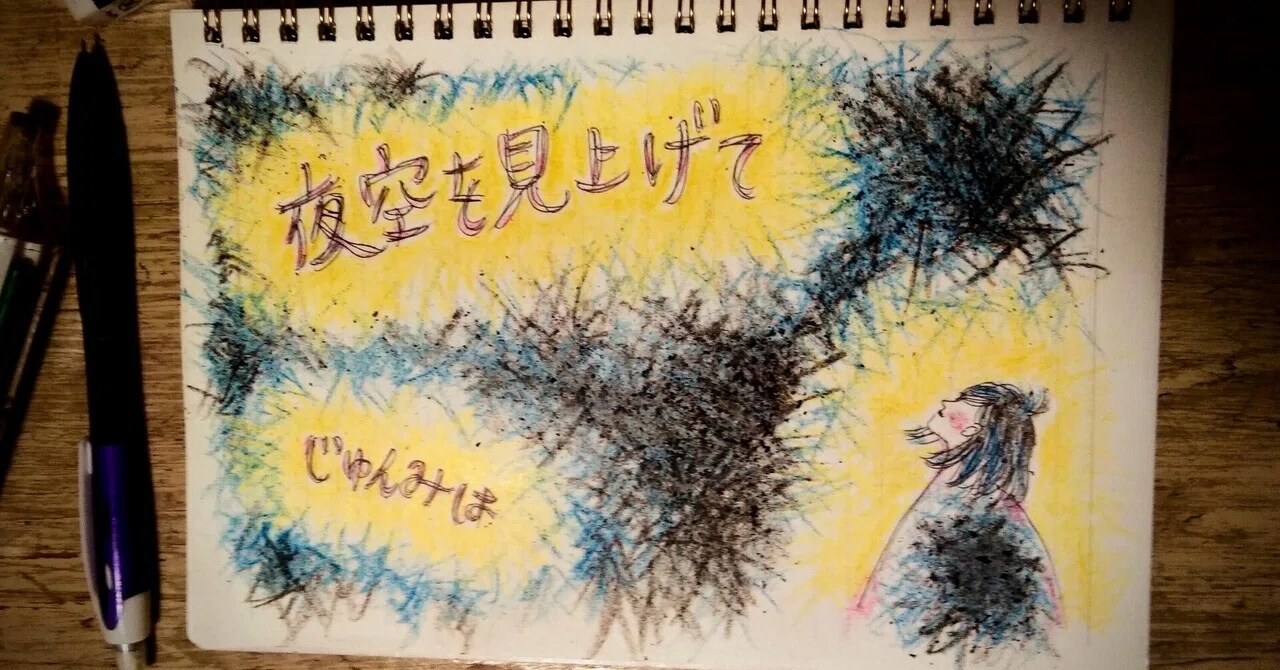 夜空を見上げて
じゅんみは